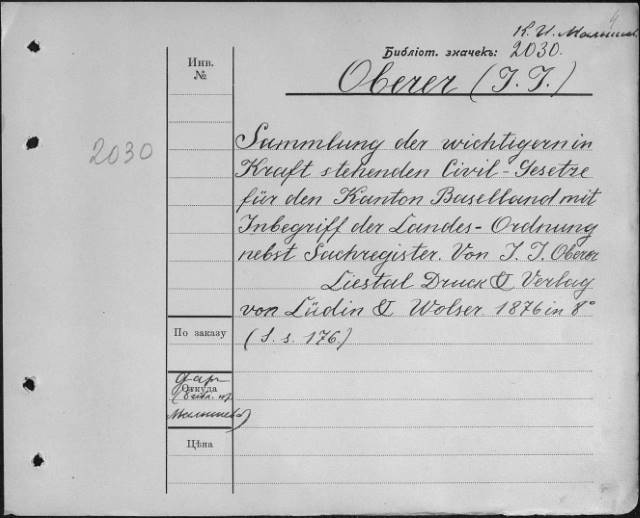 К. И.
Библіот. значекъ: 2030.
Инв.
№
Oberer (J. J.)
2030
Sammlung der wichtigern in
Kraft stehenden Civil-Gesetze
für den Kanton Baselland mit
Inbegriff der Landes-Ordnung
nebst Sachregister. Von J. J. Oberer
Liestal Druck & Verlag
von Lüdin & Wolser. 1876 in 8°
По заказу
(S. s. 176.)
Дар
Откуда
Цѣна